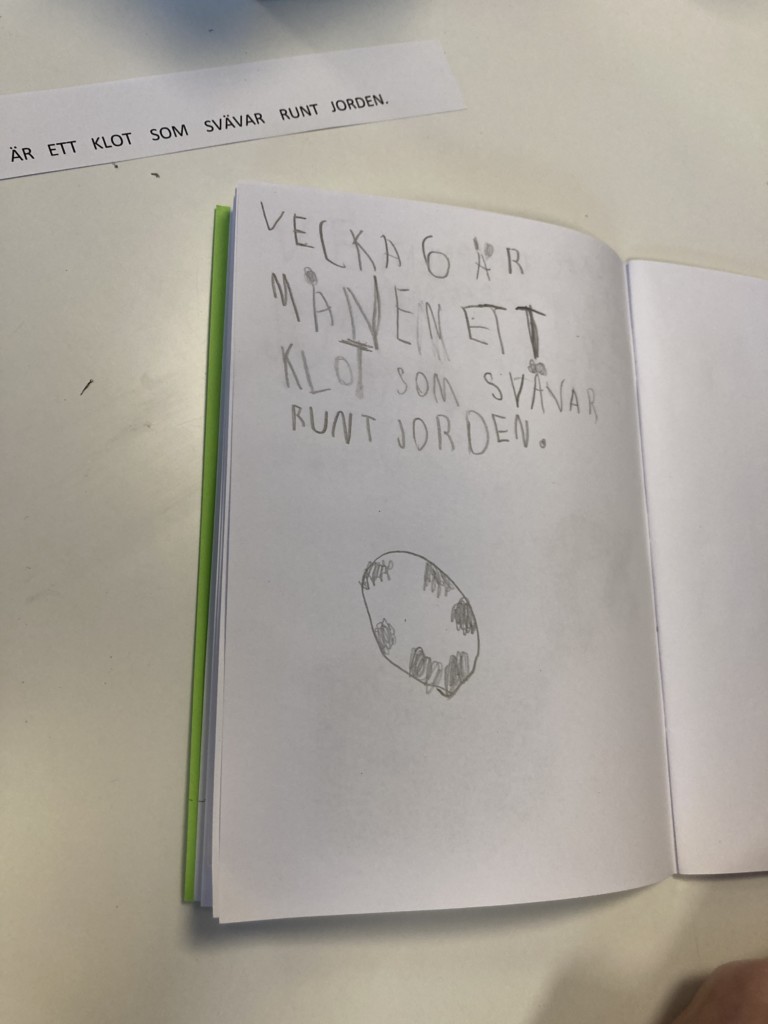 ÄR ETT KLOT SOM SVÄVAR RUNT JORDEN.
VECKA 6 ÄR
MÅNEN ETT
KLOT SOM SVÄVAR
RUNT JORDEN.